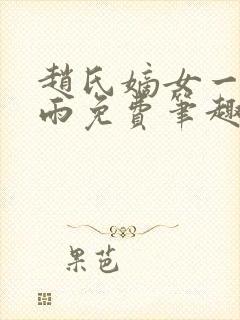 趙氏嫡女一
雨免費筆趣
果芭